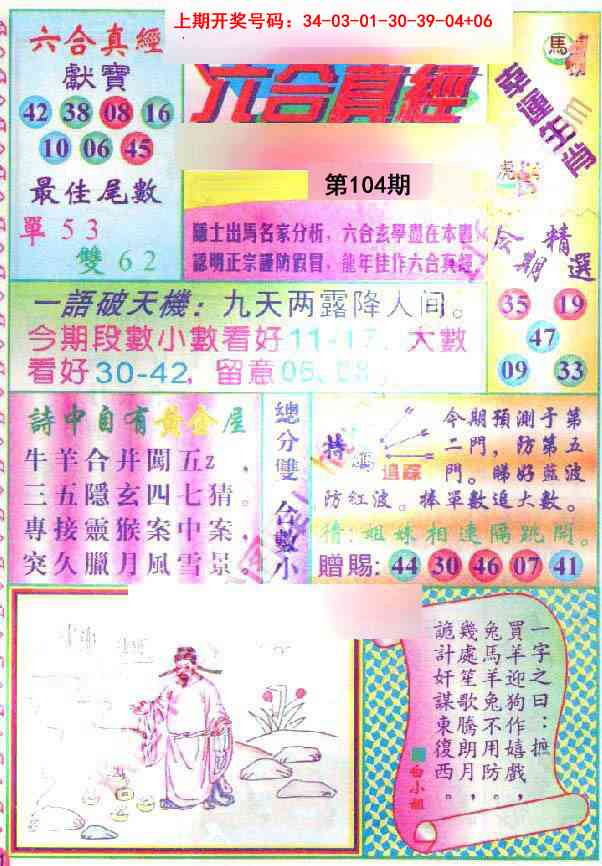 上期开奖号码：34-03-01-30-39-04+06
六合真經
獻寶
42 38 08 16
10 06 45
最佳尾數
單 5 3
雙 6 2
六合真經
第104期
隱士出馬名家分析，六合玄學盡在本
認明正宗謹防假冒，龍年佳作六合真經
馬
幸運生肖
虎
今期精選
35 19
47
09 33
一語破天機：九天两露降人间。
今期段數小數看好11-17，大數
看好30-42，留意05、08
詩中自有黃金屋
牛羊合井闖五z，
三五隱玄四七猜。
專接靈猴案中案，
突久臘月風雪景。
總分雙
合數小
特
追踪
今期預測于第
二門，防第五
門。睇好藍波
防紅波。棒單數追大數。
猜：姐妹相連隔跳開。
贈賜：44 30 46 07 41
一字之曰：摭
買羊迎狗作嬉戲，
兔馬羊兔不用防。
幾處笙歌騰朗月，
詭計奸謀東復西。
白小姐